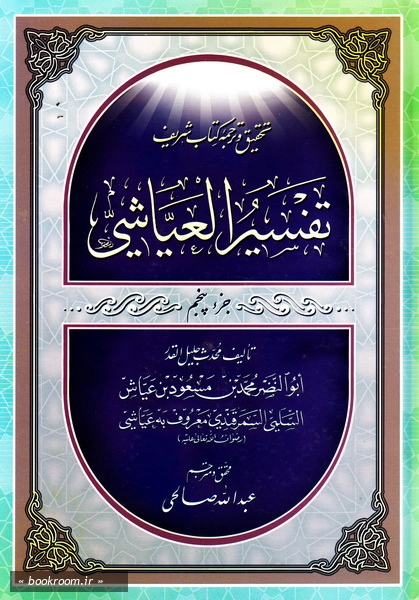 تحقیق و ترجمه کتاب شریف
تَفْسیرُ العَیّاشیّ
... جزء پنجم ...
تألیف محدث جلیل القدر
ابوالنضر محمد بن مسعود بن عیاش
السلمی السمرقندی معروف به عیاشی
(رضوان الله تعالی علیه)
محقق و مترجم
عبدالله صالحی
« bookroom.ir »